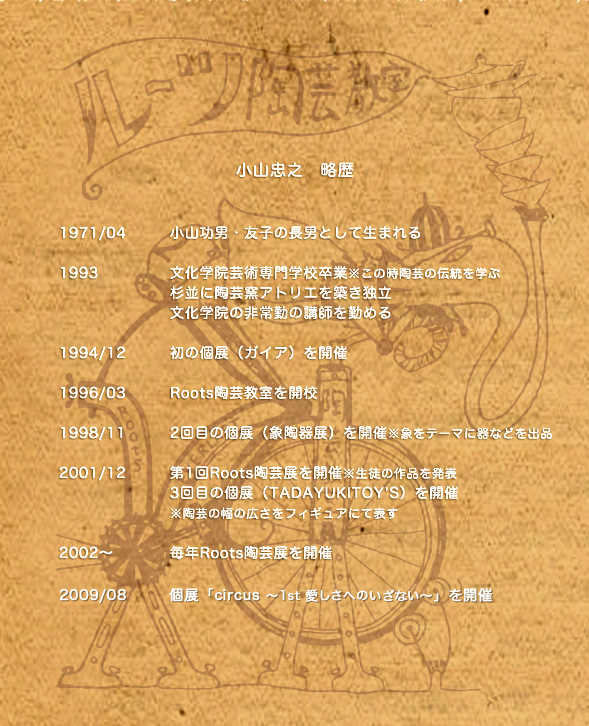 ルーツ陶芸教室
小山忠之　略歴
1971/04 小山功男・友子の長男として生まれる
1993 文化学院芸術専門学校卒業※この時陶芸の伝統を学ぶ
杉並に陶芸窯アトリエを築き独立
文化学院の非常勤の講師を勤める
1994/12 初の個展（ガイア）を開催
1996/03 Roots陶芸教室を開校
陶
1998/11 2回目の個展（象陶器展）を開催※象をテーマに器などを出品
ROOTS
2001/12 第1回Roots陶芸展を開催※生徒の作品を発表
3回目の個展（TADAYUKITOY'S）を開催
※陶芸の幅の広さをフィギュアにて表す
2002～ 毎年Roots陶芸展を開催
2009/08 個展「circus ～1st 愛しさへのいざない～」を開催